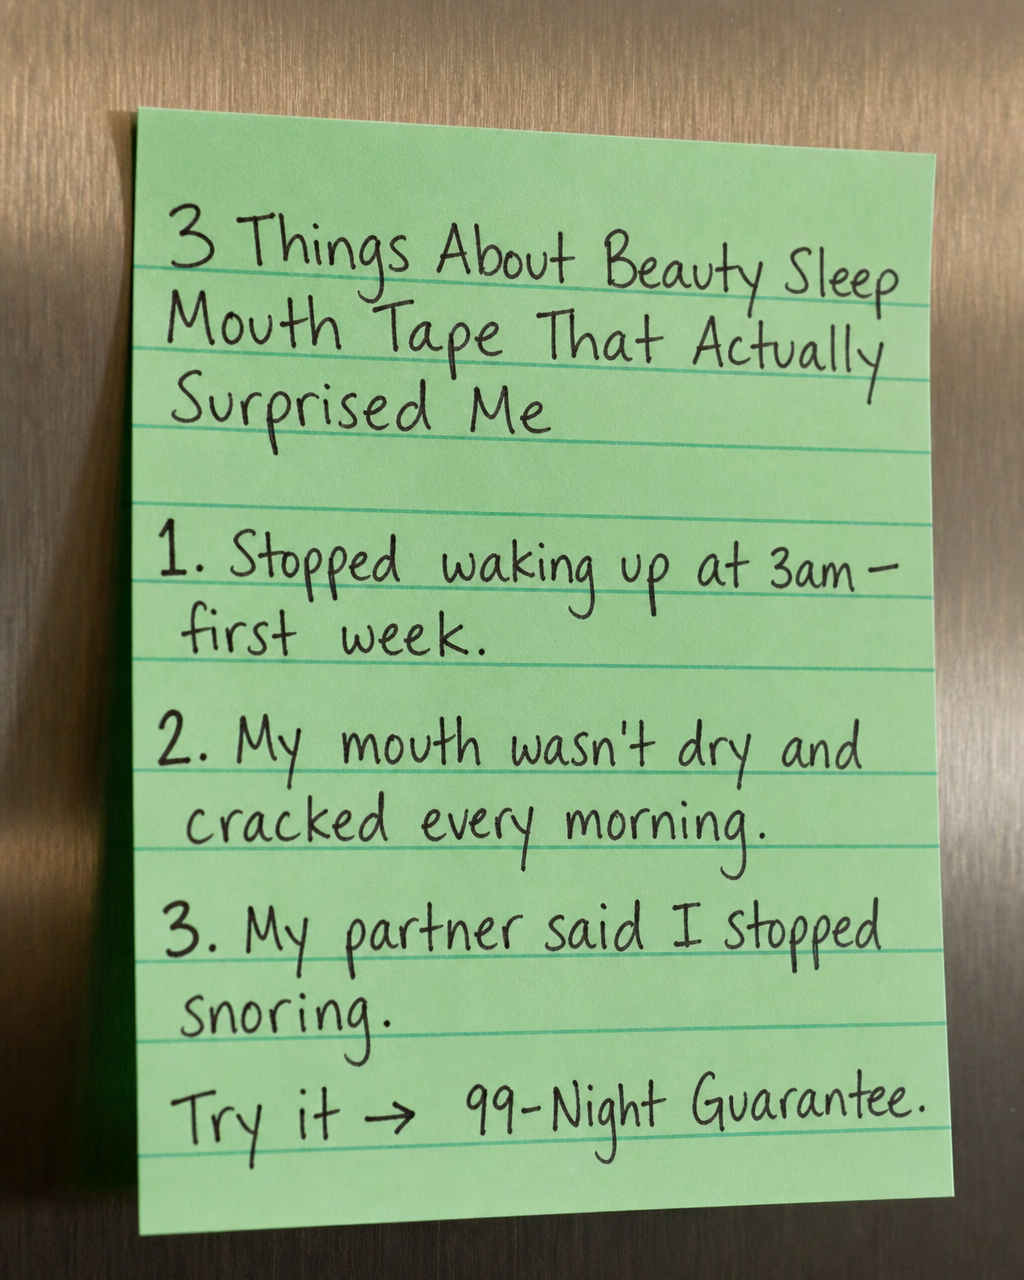 3 Things About Beauty Sleep
Mouth Tape That Actually
Surprised Me
1. Stopped waking up at 3am –
first week.
2. My mouth wasn't dry and
cracked every morning.
3. My partner said I stopped
snoring.
Try it → 99-Night Guarantee.